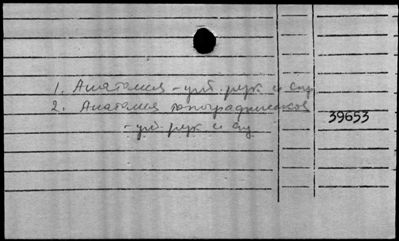 1. Анатомия - учеб. рук. и спр.
2. Анатомия топографическая
39653
- учеб. рук. и спр.